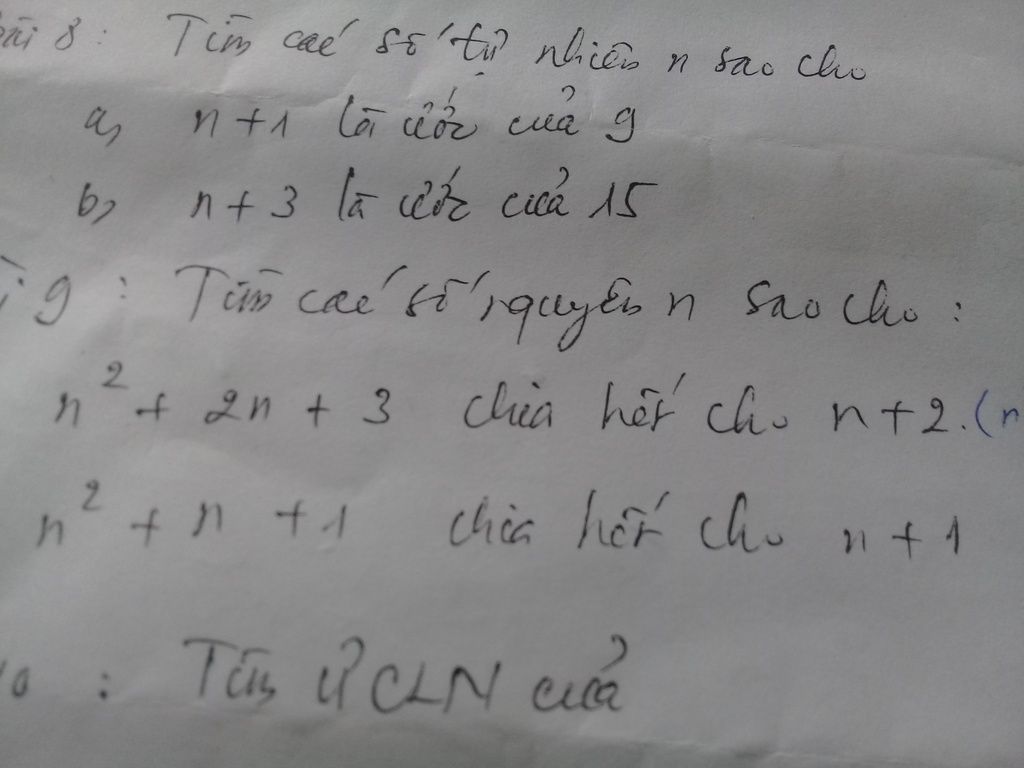 bài 8 : Tìm các số tự nhiên n sao cho
a, n + 1 là ước của 9
b, n + 3 là ước của 15
9 : Tìm các số nguyên n sao cho :
n² + 2n + 3 chia hết cho n + 2. (n
n² + n + 1 chia hết cho n + 1
10 : Tìm ƯCLN của